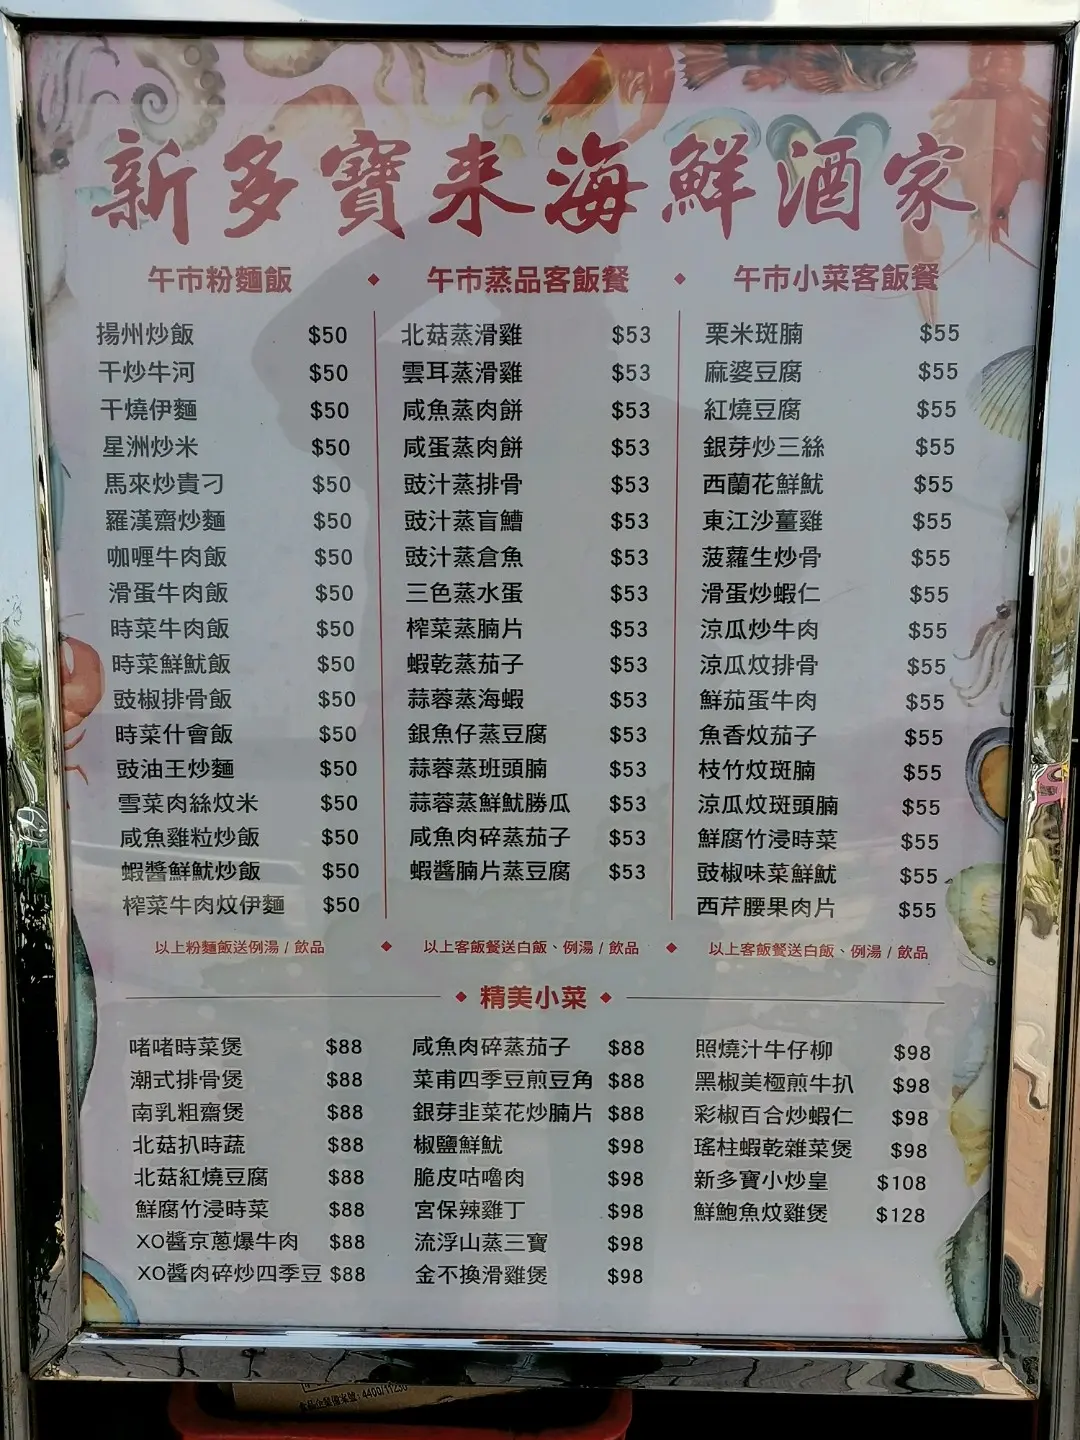 新多寶來海鮮酒家
午市粉麵飯 ◆ 午市蒸品客飯餐 ◆ 午市小菜客飯餐
揚州炒飯 $50
干炒牛河 $50
干燒伊麵 $50
星洲炒米 $50
馬來炒貴刁 $50
羅漢齋炒麵 $50
咖喱牛肉飯 $50
滑蛋牛肉飯 $50
時菜牛肉飯 $50
時菜鮮魷飯 $50
豉椒排骨飯 $50
時菜什會飯 $50
豉油王炒麵 $50
雪菜肉絲炆米 $50
咸魚雞粒炒飯 $50
蝦醬鮮魷炒飯 $50
榨菜牛肉炆伊麵 $50
以上粉麵飯送例湯 / 飲品
北菇蒸滑雞 $53
雲耳蒸滑雞 $53
咸魚蒸肉餅 $53
咸蛋蒸肉餅 $53
豉汁蒸排骨 $53
豉汁蒸盲鰽 $53
豉汁蒸倉魚 $53
三色蒸水蛋 $53
榨菜蒸腩片 $53
蝦乾蒸茄子 $53
蒜蓉蒸海蝦 $53
銀魚仔蒸豆腐 $53
蒜蓉蒸班頭腩 $53
蒜蓉蒸鮮魷勝瓜 $53
咸魚肉碎蒸茄子 $53
蝦醬腩片蒸豆腐 $53
以上客飯餐送白飯、例湯 / 飲品
栗米斑腩 $55
麻婆豆腐 $55
紅燒豆腐 $55
銀芽炒三絲 $55
西蘭花鮮魷 $55
東江沙薑雞 $55
菠蘿生炒骨 $55
滑蛋炒蝦仁 $55
涼瓜炒牛肉 $55
涼瓜炆排骨 $55
鮮茄蛋牛肉 $55
魚香炆茄子 $55
枝竹炆斑腩 $55
涼瓜炆斑頭腩 $55
鮮腐竹浸時菜 $55
豉椒味菜鮮魷 $55
西芹腰果肉片 $55
以上客飯餐送白飯、例湯 / 飲品
◆ 精美小菜 ◆
啫啫時菜煲 $88
潮式排骨煲 $88
南乳粗齋煲 $88
北菇扒時蔬 $88
北菇紅燒豆腐 $88
鮮腐竹浸時菜 $88
XO醬京蔥爆牛肉 $88
XO醬肉碎炒四季豆 $88
咸魚肉碎蒸茄子 $88
菜甫四季豆煎豆角 $88
銀芽韭菜花炒腩片 $88
椒鹽鮮魷 $98
脆皮咕嚕肉 $98
宮保辣雞丁 $98
流浮山蒸三寶 $98
金不換滑雞煲 $98
照燒汁牛仔柳 $98
黑椒美極煎牛扒 $98
彩椒百合炒蝦仁 $98
瑤柱蝦乾雜菜煲 $98
新多寶小炒皇 $108
鮮鮑魚炆雞煲 $128